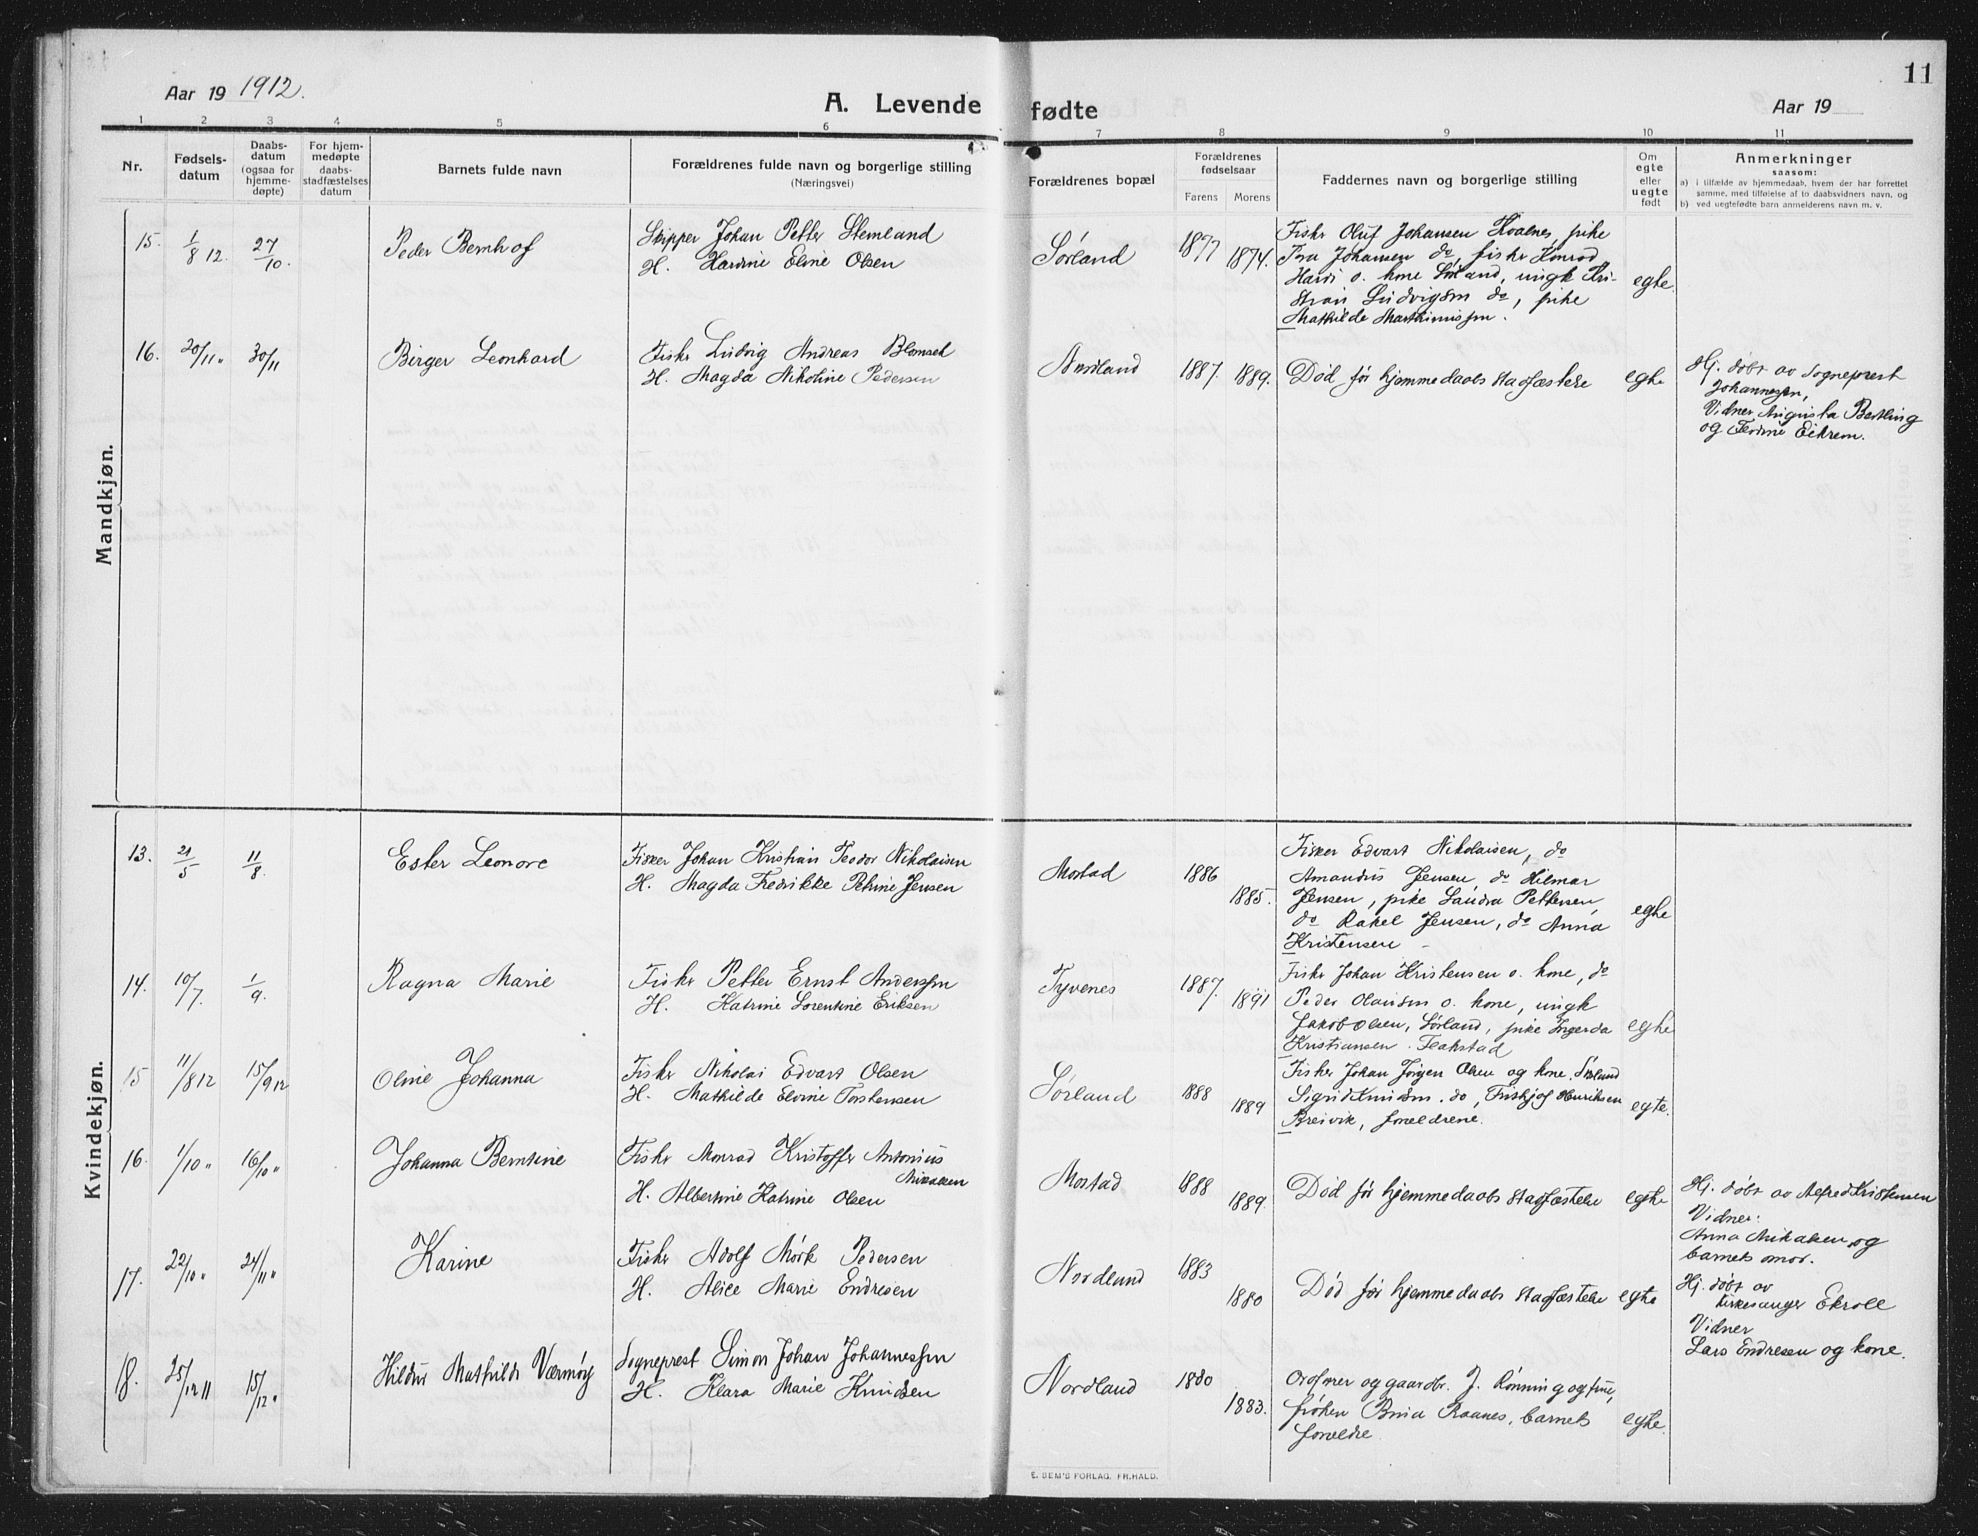 11
Aar 19 1912.
A. Levende fødte
Aar 19
1 2 3 4 5 6 7 8 9 10 11
Nr.
Fødsels-
datum
Daabs-
datum
(ogsaa for
hjemme-
døpte)
For hjem-
medøpte
daabs-
stadfæstelses
datum
Barnets fulde navn
Forældrenes fulde navn og borgerlige stilling
(Næringsvei)
Forældrenes bopæl
Forældrenes
fødselsaar
Farens Morens
Faddernes navn og borgerlige stilling
Om
egte
eller
uegte
født
Anmerkninger
saasom:
a) i tilfælde av hjemmedaab, hvem der har forrettet
samme, med tilføielse af to daabsvidners navn, og
b) ved uegtefødte barn anmelderens navn m. v.
Mandkjøn.
15. 1/8 12. 27/10.
Peder Bernhof
Skipper Johan Petter Stemland
H. Hardine Eline Olsen
Sørland
1877 1874.
Fisker Oluf Johansen Kvalnes, pike
Tora Johansen do, fisker Konrad
Hardi o. kone Sørland, ungk Kri-
stian Ludvigsen do, pike
Mathilde Marthinussen.
egte.
16. 20/11 " 30/11
Birger Leonhard
Fisker Ludvig Andreas Blomseth
H. Magda Nikoline Pedersen
Nordland
1887. 1889.
Død før hjemmedaabs stadfæstelse
egte
Hj. døbt av sogneprest
Johannessen,
Vidner Augusta Bertling
og Ferdine Eikrem.
Kvindekjøn.
13. 21/5 11/8.
Ester Leonore
Fisker Johan Kristian Teodor Nikolaisen
H. Magda Fredrikke Petrine Jensen
Mostad
1886 1885.
Fisker Edvart Nikolaisen, do
Amandus Jensen, do Hilmar
Jensen, pike Sandra Pettersen,
do Rakel Jensen, do Anna
Kristensen -
egte
14. 10/7. 1/9.
Ragna Marie
Fisker Petter Ernst Anderssen
H. Katrine Lorentine Eriksen
Tyvenes
1887. 1891
Fisker Johan Kristensen o. kone, do
Peder Olaussen o. kone, ungk
Jakob Olsen, Sørland, pike Ingerda
Kristiansen
egte
15 11/8 12 15/9 12
Oline Johanna
Fisker Nikolai Edvart Olsen
H. Mathilde Elvine Torstensen
Sørland
1888 1889
Fisker Johan Jørgen Olsen og kone, Sørland
Sigrid Knudsen, do, Fritjof Henriksen
Breivik, foreldrene.
egte.
16. 1/10 " 16/10 "
Johanna Bentine
Fisker Monrad Kristoffer Antonius
Mikalsen
H. Albertine Katrine Olsen
Mostad
1888 1889.
Død før hjemmedaabs stadfæstelse
egte
Hj. døbt av Alfred Kristensen
Vidner:
Anna Mikalsen og
barnets mor.
17. 22/10 " 24/11 "
Karine
Fisker Adolf Mørk Pedersen
H. Alice Marie Endresen
Nordland
1883 1880
Død før hjemmedaabs stadfæstelse
egte
Hj. døbt av
kirkesanger Ekroll
Vidner
Lars Endresen og kone.
18. 25/ 15/12 "
Hildur Mathilde Værmøy
Sogneprest Simon Johan Johannessen
H. Klara Marie Knudsen
Nordland
1880 1883.
Ordfører og gaardbr. J. Rønning og frue,
frøken Raanes, barnets
foreldre.
egte.
E. SEM'S FORLAG, FR.HALD.